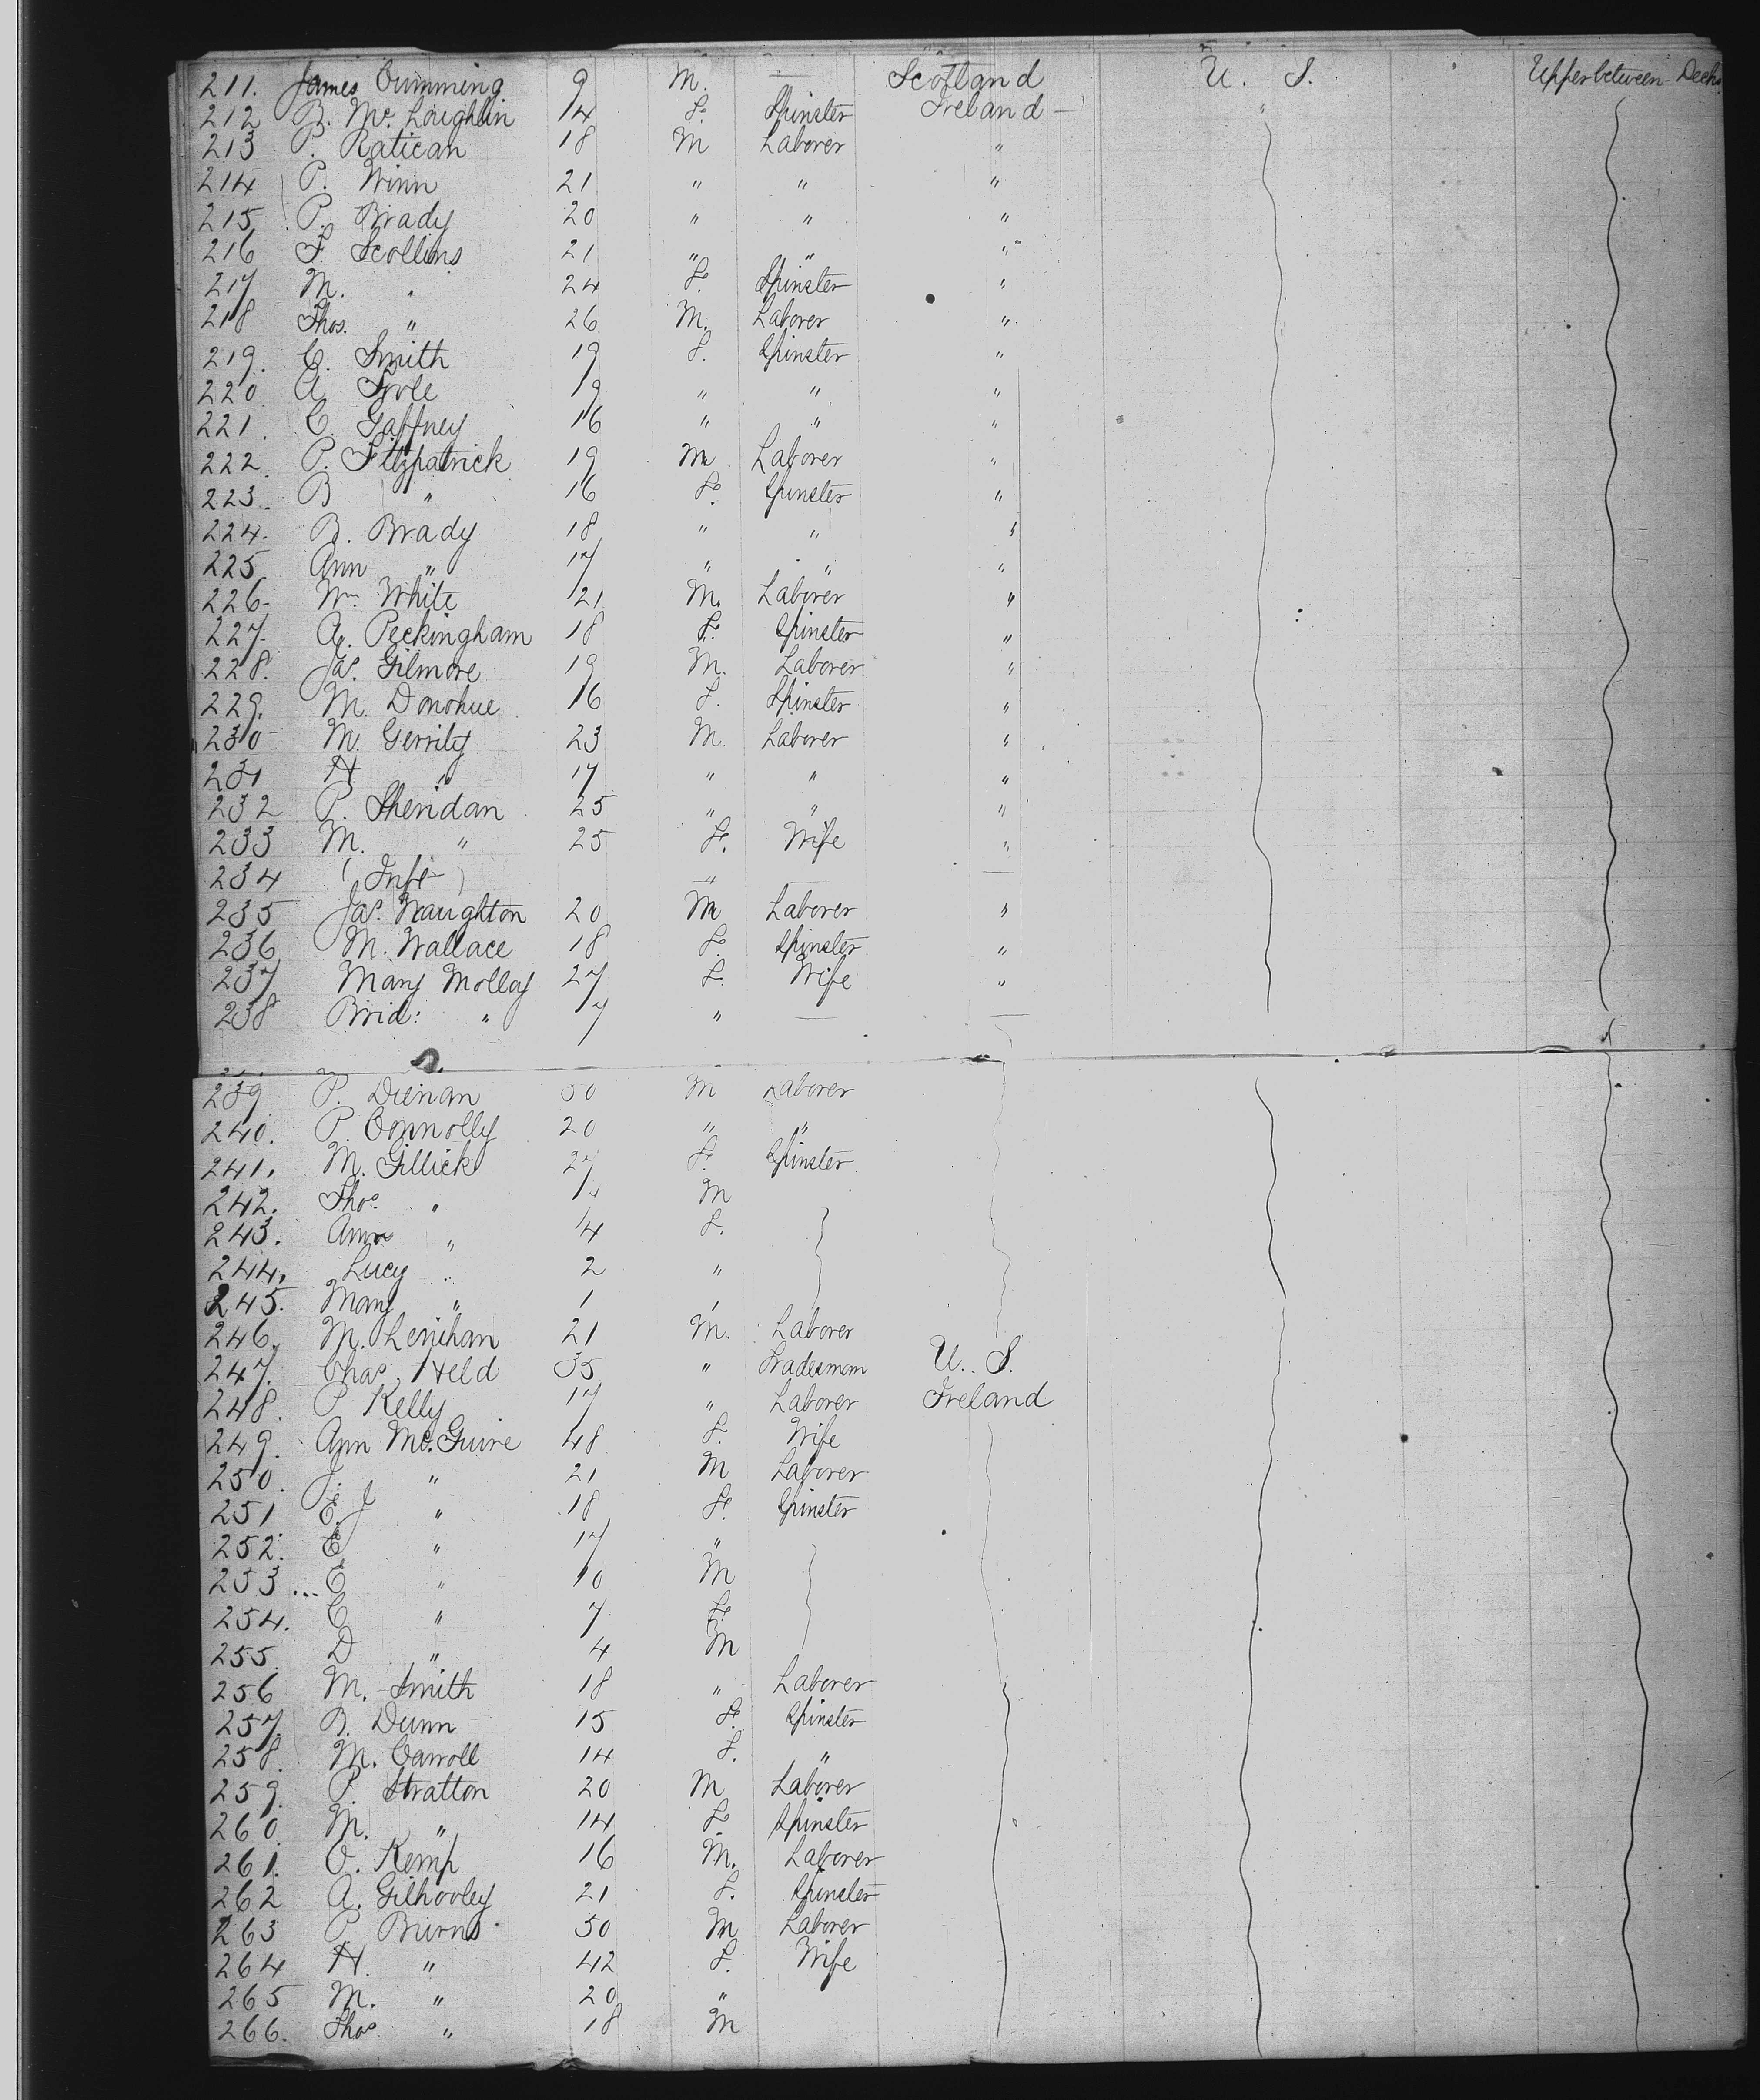 211. James Cumming 9 M. — Scotland U. S. Upper between Decks
212 B. Mc. Loughlin 14 F. Spinster Ireland "
213 P. Ratican 18 M Laborer "
214 P. Winn 21 " " "
215 P. Brady 20 " " "
216 F. Scollins 21 " " "
217 M. " 24 F. Spinster "
218 Thos. " 26 M. Laborer "
219. C. Smith 19 F. Spinster "
220 A 19 " " "
221. C. Gaffney 16 " " "
222. P. Fitzpatrick 19 M Laborer "
223. B " 16 F. Spinster "
224. B. Brady 18 " " "
225 Ann " 17 " " "
226- Wm. White 21 M. Laborer "
227. A. Peckingham 18 F. Spinster "
228. Jas. Gilmore 19 M. Laborer "
229. M. Donohue 16 F. Spinster "
230 M. Gerrity 23 M. Laborer "
231 H " 17 " " "
232 P. Sheridan 25 " " "
233 M. " 25 F. Wife "
234 (Inft) — " — —
235 Jas. Naughton 20 M Laborer "
236 M. Wallace 18 F. Spinster "
237 Mary Molloy 27 F. Wife "
238 Brid: " 7 " — —
239 P. 50 M Laborer
240. P. Connolly 20 " "
241. M. Gillick 27 F. Spinster
242. Thos. " M
243. Ann " 4 F.
244. Lucy " 2 "
245. Mary " 1 "
246. M. Lenihan 21 M. Laborer
247. Chas. Held 35 " Tradesman U. S.
248. P Kelly 17 " Laborer Ireland
249. Ann Mc. Guire 48 F. Wife
250. J. " 21 M Laborer
251 E. J " 18 F. Spinster
252. E " 17 "
253... E " 10 M
254. C " 7 F.
255. D " 4 M
256 M. Smith 18 " Laborer
257. B. Dunn 15 F. Spinster
258. M. Carroll 14 F. "
259. P. Stratton 20 M Laborer
260. M. " 14 F. Spinster
261. O. Kemp 16 M. Laborer
262 A. Gilhooley 21 F. Spinster
263 P. Burns 50 M Laborer
264 H. " 42 F. Wife
265 M. " 20 "
266. Thos. " 18 M